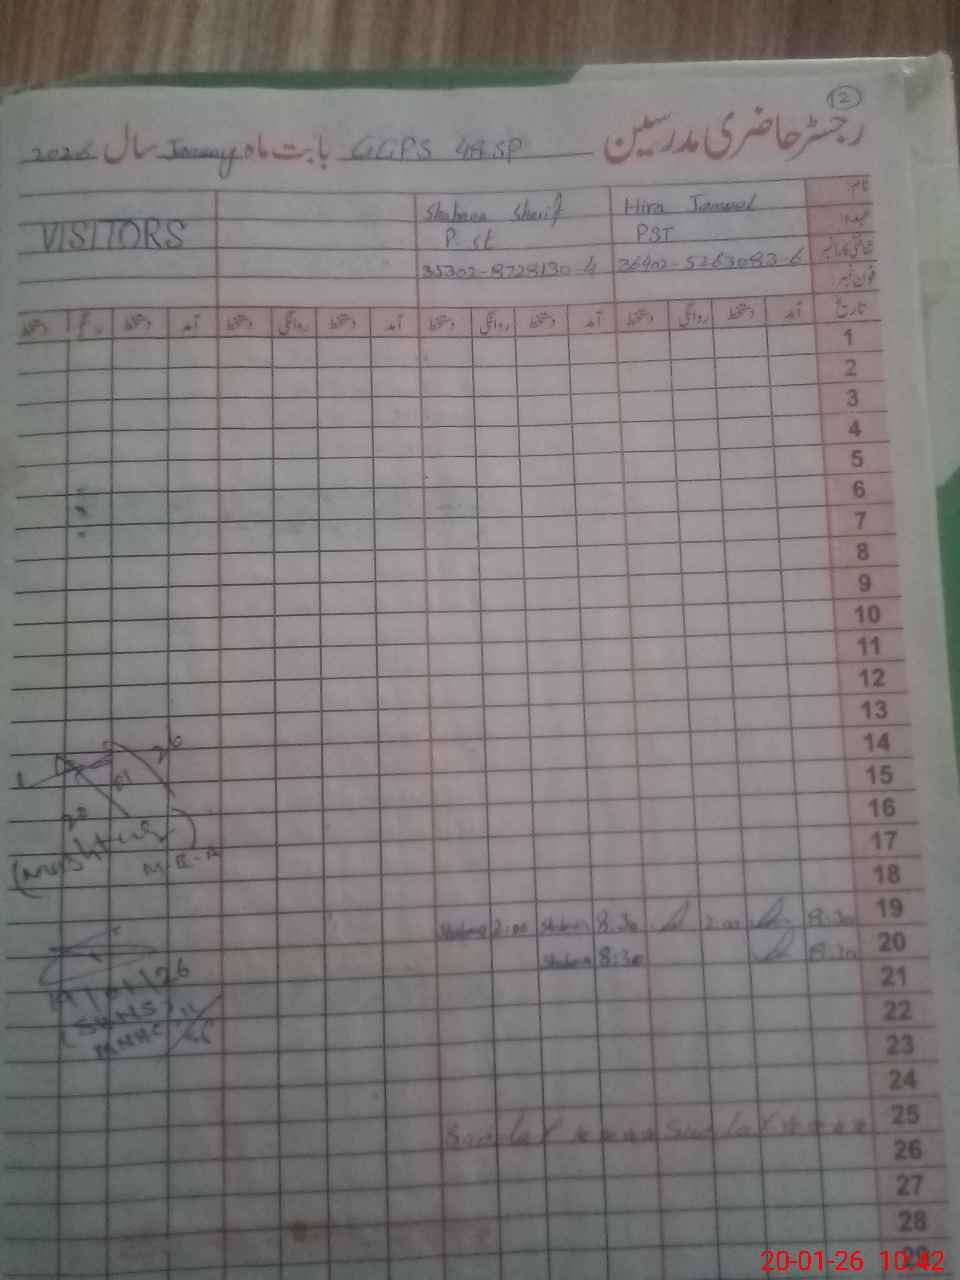 2
رجسٹر حاضری مدرسین GGPS 4A.SP بابت ماہ January سال 2026
نام: Hira Jameel Shabana Sharif
عہدہ: PST P st VISITORS
شناختی کارڈ نمبر 36402-5263083-6 35302-8728130-4
فون نمبر:
تاریخ آمد دستخط روانگی دستخط آمد دستخط روانگی دستخط آمد دستخط روانگی دستخط آمد دستخط روانگی دستخط
1
2
3
4
5
6
7
8
9
10
11
12
13
14
15
16
17
18
19 8:30 2:00 8:30 Shabana 2:00 Shabana
20 8:30 8:30 Shabana
21
22
23
24
25 Sunday Sunday
26
27
28
29
20 01 26
(Mushtaq
19/01/26
20-01-26 10:42